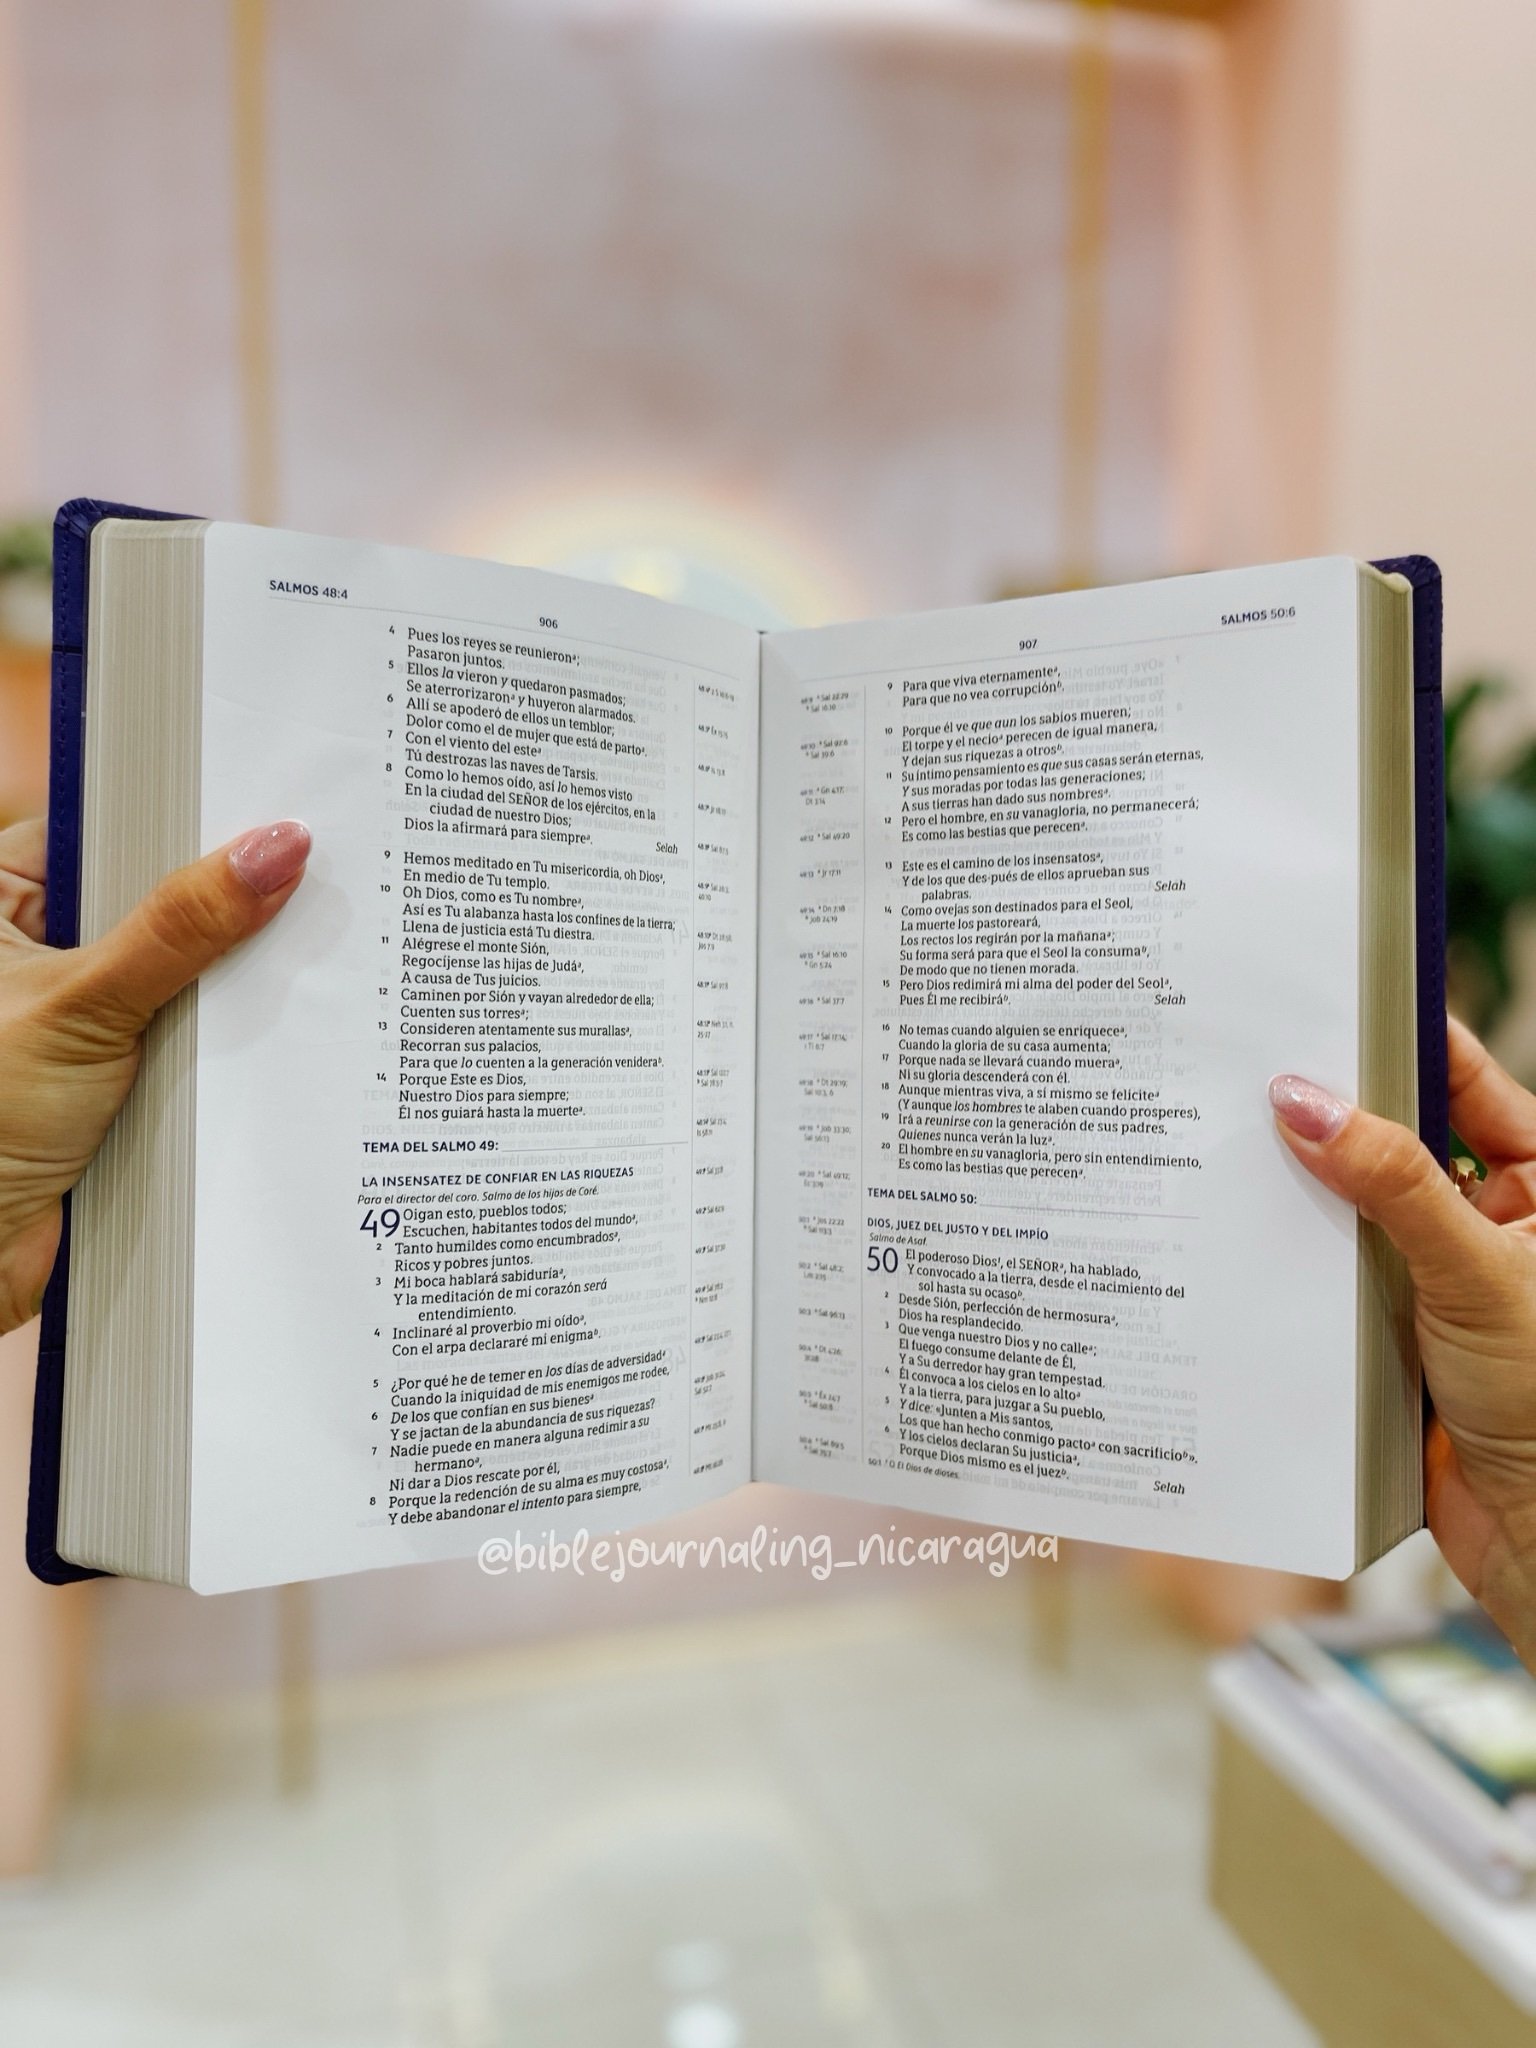 SALMOS 48:4
906
4 Pues los reyes se reunieronª;
Pasaron juntos.
5 Ellos la vieron y quedaron pasmados;
Se aterrorizaronª y huyeron alarmados.
6 Allí se apoderó de ellos un temblor;
Dolor como el de mujer que está de partoª.
7 Con el viento del esteª
Tú destrozas las naves de Tarsis.
8 Como lo hemos oído, así lo hemos visto
En la ciudad del SEÑOR de los ejércitos, en la
ciudad de nuestro Dios;
Dios la afirmará para siempreª. Selah
9 Hemos meditado en Tu misericordia, oh Diosª,
En medio de Tu templo.
10 Oh Dios, como es Tu nombreª,
Así es Tu alabanza hasta los confines de la tierra;
Llena de justicia está Tu diestra.
11 Alégrese el monte Sión,
Regocíjense las hijas de Judáª,
A causa de Tus juicios.
12 Caminen por Sión y vayan alrededor de ella;
Cuenten sus torresª;
13 Consideren atentamente sus murallasª,
Recorran sus palacios,
Para que lo cuenten a la generación venideraᵇ.
14 Porque Este es Dios,
Nuestro Dios para siempre;
Él nos guiará hasta la muerteª.
TEMA DEL SALMO 49:
LA INSENSATEZ DE CONFIAR EN LAS RIQUEZAS
Para el director del coro. Salmo de los hijos de Coré.
49 Oigan esto, pueblos todos;
Escuchen, habitantes todos del mundoª,
2 Tanto humildes como encumbradosª,
Ricos y pobres juntos.
3 Mi boca hablará sabiduríaª,
Y la meditación de mi corazón será
entendimiento.
4 Inclinaré al proverbio mi oídoª,
Con el arpa declararé mi enigmaᵇ.
5 ¿Por qué he de temer en los días de adversidadª
Cuando la iniquidad de mis enemigos me rodee,
6 De los que confían en sus bienesª
Y se jactan de la abundancia de sus riquezas?
7 Nadie puede en manera alguna redimir a su
hermanoª,
Ni dar a Dios rescate por él,
8 Porque la redención de su alma es muy costosaª,
Y debe abandonar el intento para siempre,
SALMOS 50:6
907
9 Para que viva eternamenteª,
Para que no vea corrupciónᵇ.
10 Porque él ve que aun los sabios mueren;
El torpe y el necioª perecen de igual manera,
Y dejan sus riquezas a otrosᵇ.
11 Su íntimo pensamiento es que sus casas serán eternas,
Y sus moradas por todas las generaciones;
A sus tierras han dado sus nombresª.
12 Pero el hombre, en su vanagloria, no permanecerá;
Es como las bestias que perecenª.
13 Este es el camino de los insensatosª,
Y de los que des·pués de ellos aprueban sus
palabras. Selah
14 Como ovejas son destinados para el Seol,
La muerte los pastoreará,
Los rectos los regirán por la mañanaª;
Su forma será para que el Seol la consumaᵇ,
De modo que no tienen morada.
15 Pero Dios redimirá mi alma del poder del Seolª,
Pues Él me recibiráᵇ. Selah
16 No temas cuando alguien se enriqueceª,
Cuando la gloria de su casa aumenta;
17 Porque nada se llevará cuando mueraª,
Ni su gloria descenderá con él.
18 Aunque mientras viva, a sí mismo se feliciteª
(Y aunque los hombres te alaben cuando prosperes),
19 Irá a reunirse con la generación de sus padres,
Quienes nunca verán la luzª.
20 El hombre en su vanagloria, pero sin entendimiento,
Es como las bestias que perecenª.
TEMA DEL SALMO 50:
DIOS, JUEZ DEL JUSTO Y DEL IMPÍO
Salmo de Asaf.
50 El poderoso Dios¹, el SEÑORª, ha hablado,
Y convocado a la tierra, desde el nacimiento del
sol hasta su ocasoᵇ.
2 Desde Sión, perfección de hermosuraª,
Dios ha resplandecido.
3 Que venga nuestro Dios y no calleª;
El fuego consume delante de Él,
Y a Su derredor hay gran tempestad.
4 Él convoca a los cielos en lo altoª
Y a la tierra, para juzgar a Su pueblo,
5 Y dice: «Junten a Mis santos,
Los que han hecho conmigo pactoª con sacrificioᵇ».
6 Y los cielos declaran Su justiciaª,
Porque Dios mismo es el juezᵇ. Selah
50:1 ¹ O El Dios de dioses.
@biblejournaling_nicaragua